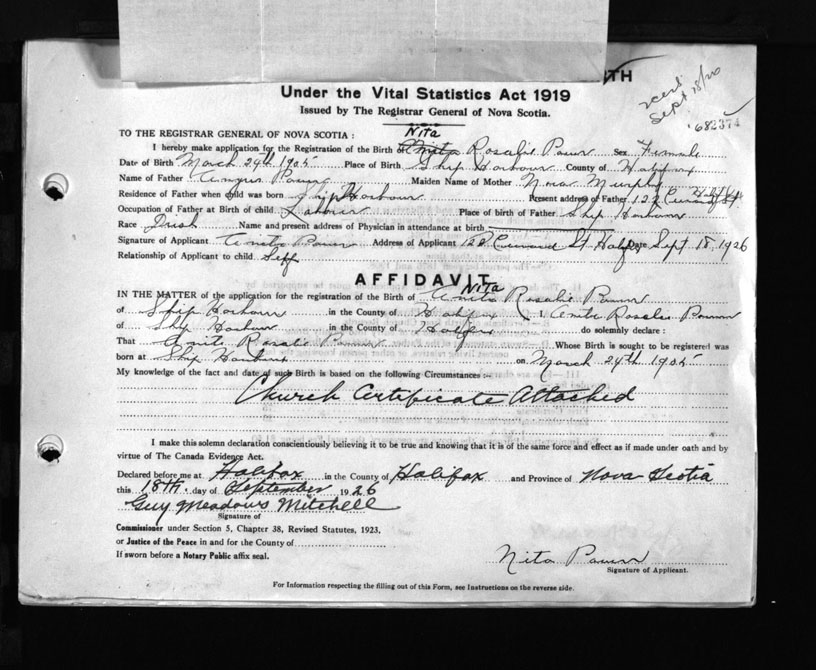 TH
Under the Vital Statistics Act 1919
Issued by The Registrar General of Nova Scotia.
Sept 18/26
682374
TO THE REGISTRAR GENERAL OF NOVA SCOTIA :
Nita
I hereby make application for the Registration of the Birth of Anita Rosalie Power Sex Female
Date of Birth March 24th 1905 Place of Birth Ship Harbour County of Halifax
Name of Father Power Maiden Name of Mother Nora Murphy
Residence of Father when child was born Ship Harbour Present address of Father 122 Cunard St
Occupation of Father at Birth of child Labour Place of birth of Father Ship Harbour
Race Irish Name and present address of Physician in attendance at birth
Signature of Applicant Anita Power Address of Applicant 122 Cunard St. Halifax Date Sept 18, 1926
Relationship of Applicant to child Self
AFFIDAVIT
Nita
IN THE MATTER of the application for the registration of the Birth of Anita Rosalie Power
of Ship Harbour in the County of Halifax I Anita Rosalie Power
of Ship Harbour in the County of Halifax do solemnly declare :
That Anita Rosalie Power Whose Birth is sought to be registered was
born at Ship Harbour on March 24th 1905
My knowledge of the fact and date of such Birth is based on the following Circumstances :-
Church Certificate Attached
I make this solemn declaration conscientiously believing it to be true and knowing that it is of the same force and effect as if made under oath and by
virtue of The Canada Evidence Act.
Declared before me at Halifax in the County of Halifax and Province of Nova Scotia
this 18th. day of September 1926
Guy Meadows Mitchell
Signature of
Commissioner under Section 5, Chapter 38, Revised Statutes, 1923.
or Justice of the Peace in and for the County of
If sworn before a Notary Public affix seal.
Nita Power
Signature of Applicant.
For Information respecting the filling out of this Form, see Instructions on the reverse side.